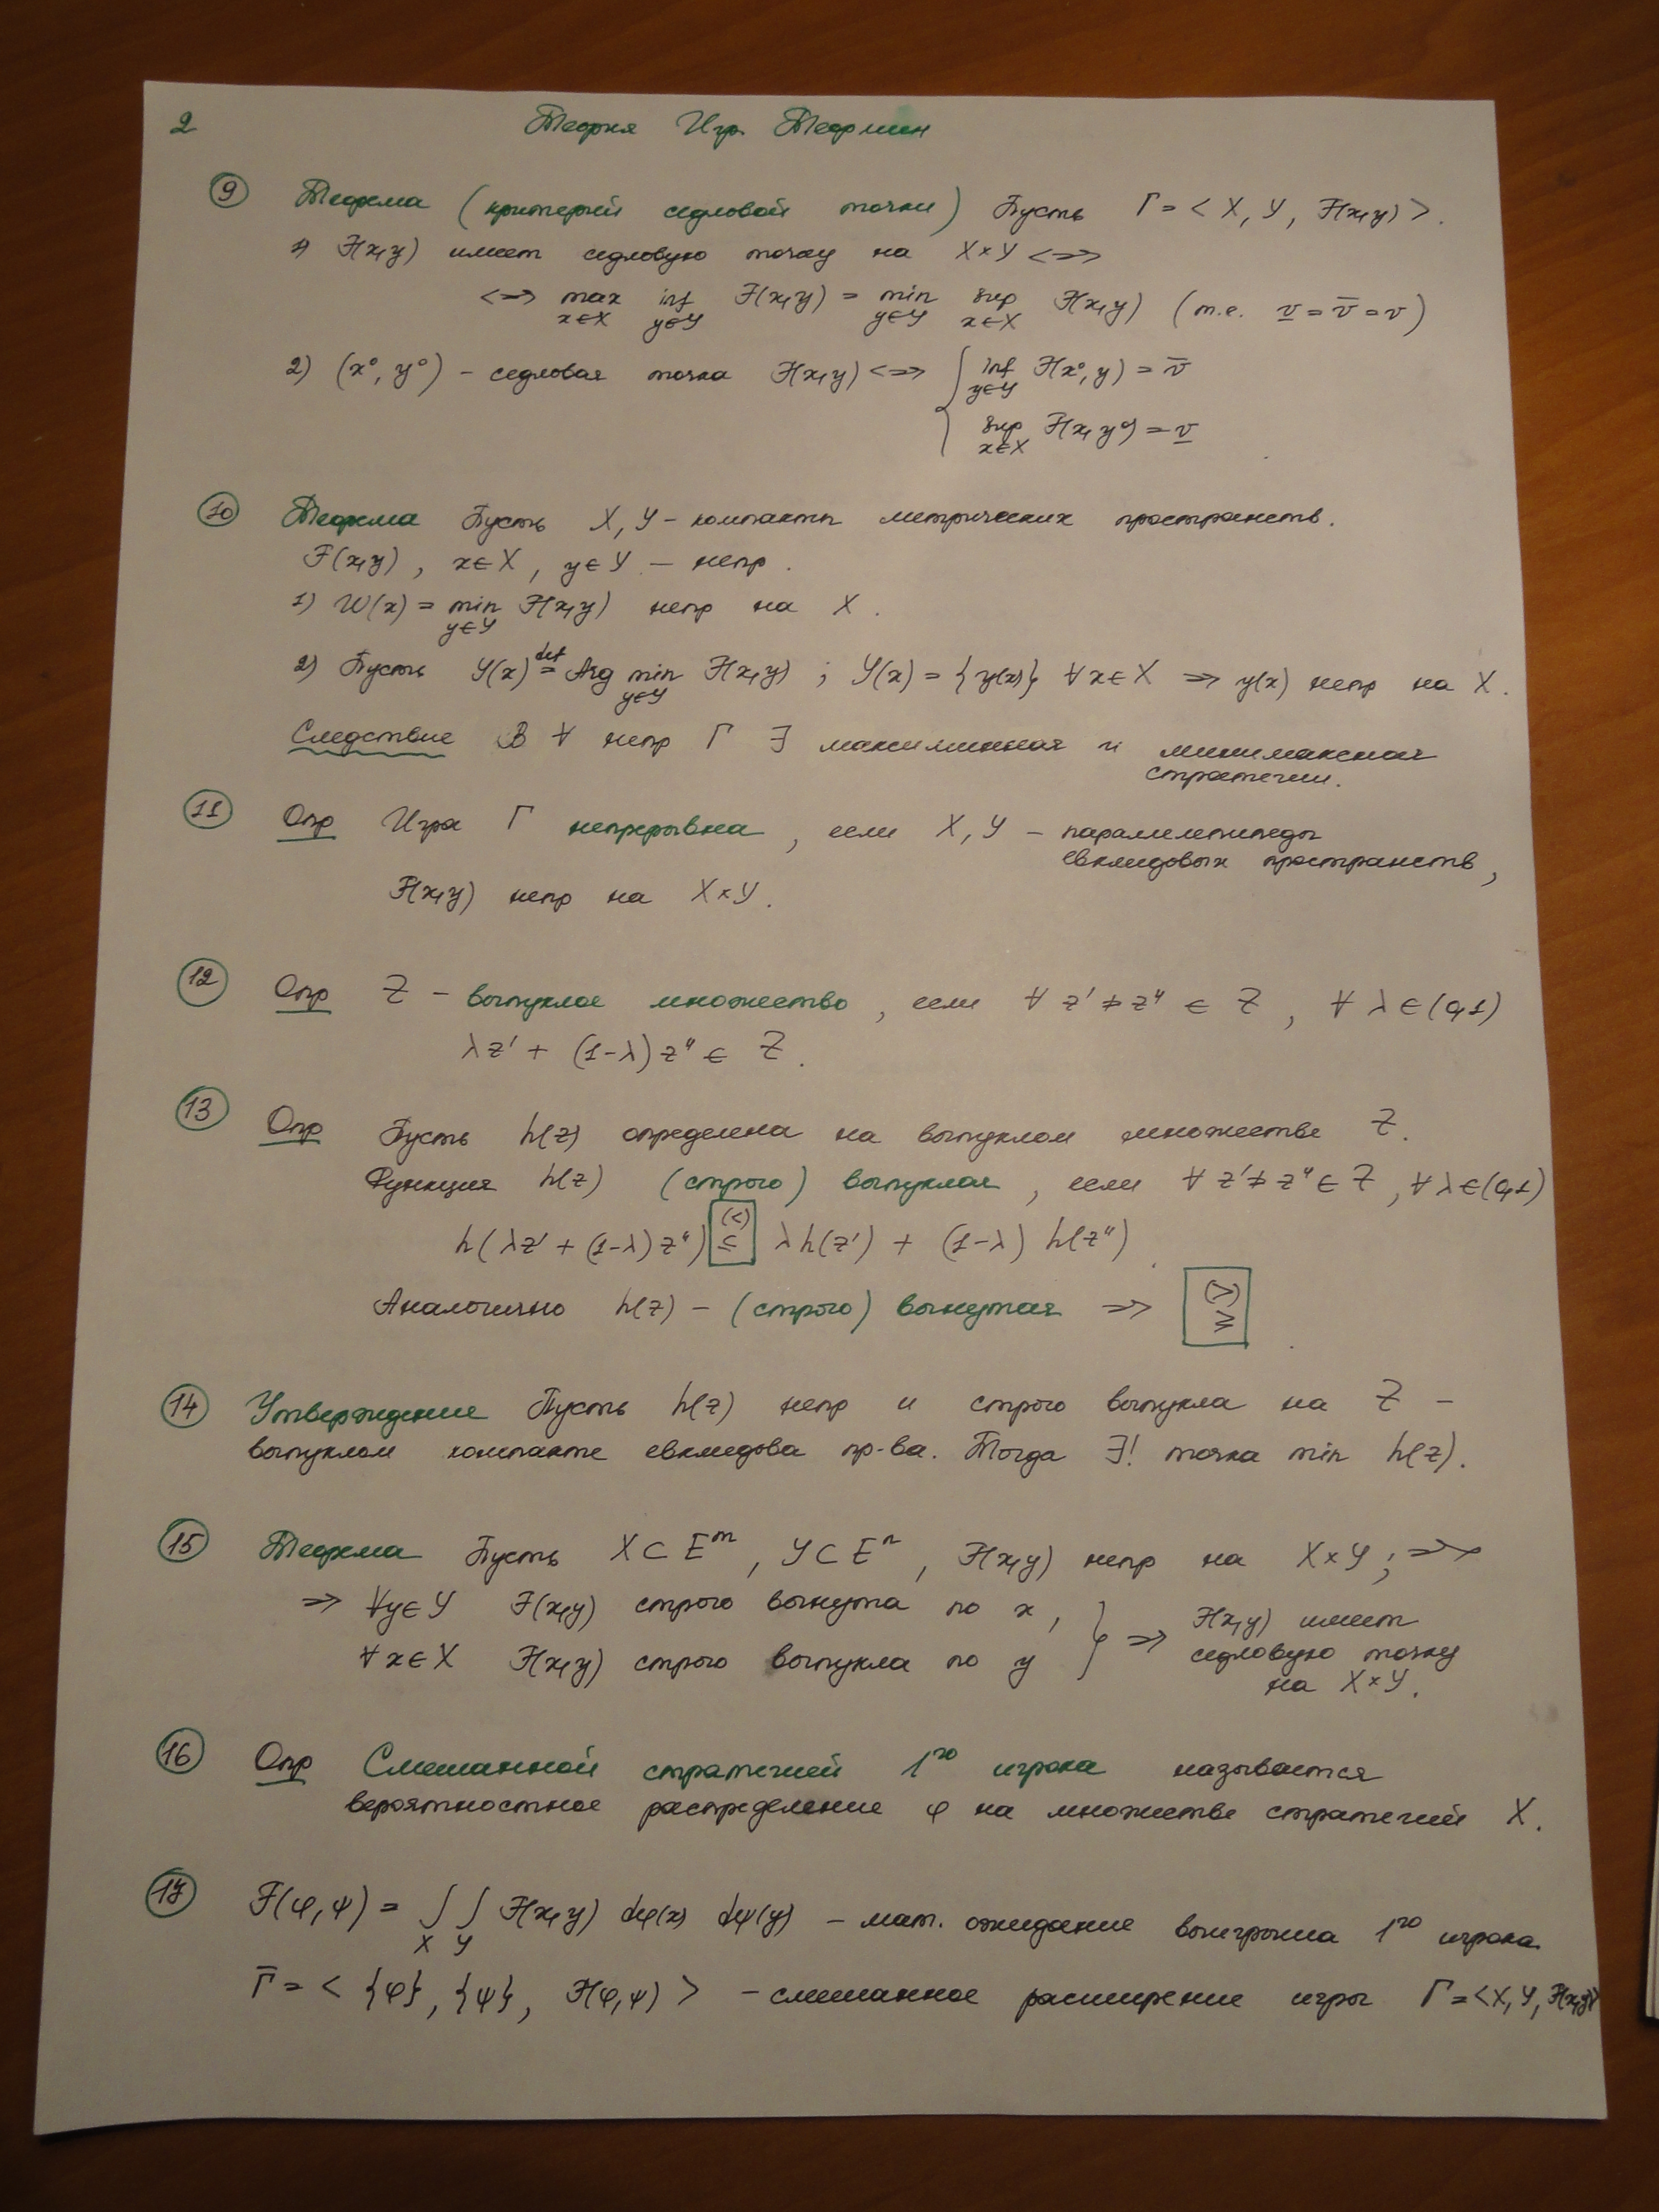 2 Теория Игр. Теормин
9 Теорема (критерий седловой точки) Пусть Γ = < X, Y, F(x,y) >.
1) F(x,y) имеет седловую точку на X×Y <=>
<=> max x∈X inf y∈Y F(x,y) = min y∈Y sup x∈X F(x,y) (т.е. v̲ = v̅ = v)
2) (x⁰, y⁰) – седловая точка F(x,y) <=> { inf y∈Y F(x⁰, y) = v̅
sup x∈X F(x, y⁰) = v̲
10 Теорема Пусть X, Y – компакты метрических пространств.
F(x,y), x∈X, y∈Y – непр.
1) W(x) = min y∈Y F(x,y) непр на X.
2) Пусть Y(x) def= Arg min y∈Y F(x,y) ; Y(x) = {y(x)} ∀x∈X => y(x) непр на X.
Следствие В ∀ непр Γ ∃ максиминная и минимаксная
стратегии.
11 Опр Игра Γ непрерывна, если X, Y – параллелепипеды
евклидовых пространств,
F(x,y) непр на X×Y.
12 Опр Z – выпуклое множество, если ∀ z' ≠ z'' ∈ Z, ∀ λ ∈ (0,1)
λz' + (1-λ)z'' ∈ Z.
13 Опр Пусть h(z) определена на выпуклом множестве Z.
Функция h(z) (строго) выпуклая, если ∀ z' ≠ z'' ∈ Z, ∀ λ∈(0,1)
h(λz' + (1-λ)z'') (<) ≤ λh(z') + (1-λ) h(z'').
Аналогично h(z) – (строго) вогнутая => (>) ≥.
14 Утверждение Пусть h(z) непр и строго выпукла на Z –
выпуклом компакте евклидова пр-ва. Тогда ∃! точка min h(z).
15 Теорема Пусть X ⊂ Eᵐ, Y ⊂ Eⁿ, F(x,y) непр на X×Y; =>
=> ∀y∈Y F(x,y) строго вогнута по x, } => F(x,y) имеет
∀x∈X F(x,y) строго выпукла по y седловую точку
на X×Y.
16 Опр Смешанной стратегией 1го игрока называется
вероятностное распределение φ на множестве стратегий X.
17 F(φ, ψ) = ∫X ∫Y F(x,y) dφ(x) dψ(y) – мат. ожидание выигрыша 1го игрока
Γ̅ = < {φ}, {ψ}, F(φ,ψ) > – смешанное расширение игры Γ = <X, Y, F(x,y)>